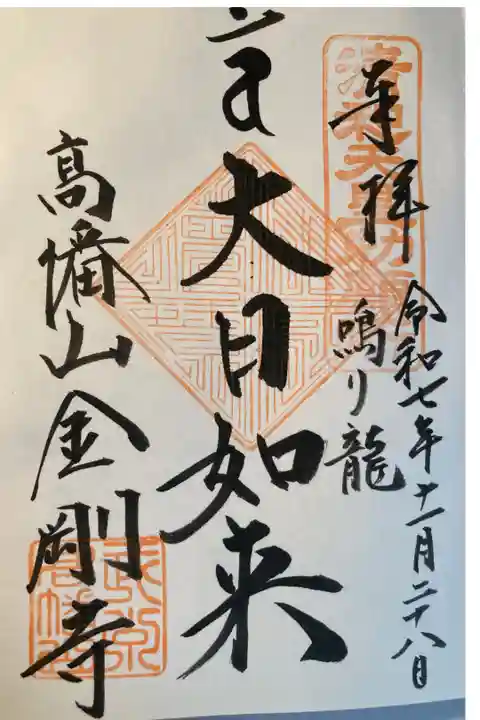 奉拝
令和七年十一月二十八日
鳴り龍
大日如来
高幡山金剛寺